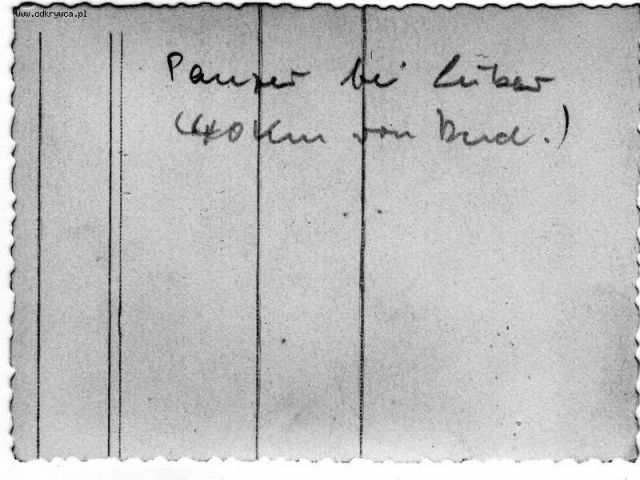 www.odkrywca.pl
Panzer bei Lubar
(40 Km von Dud.)